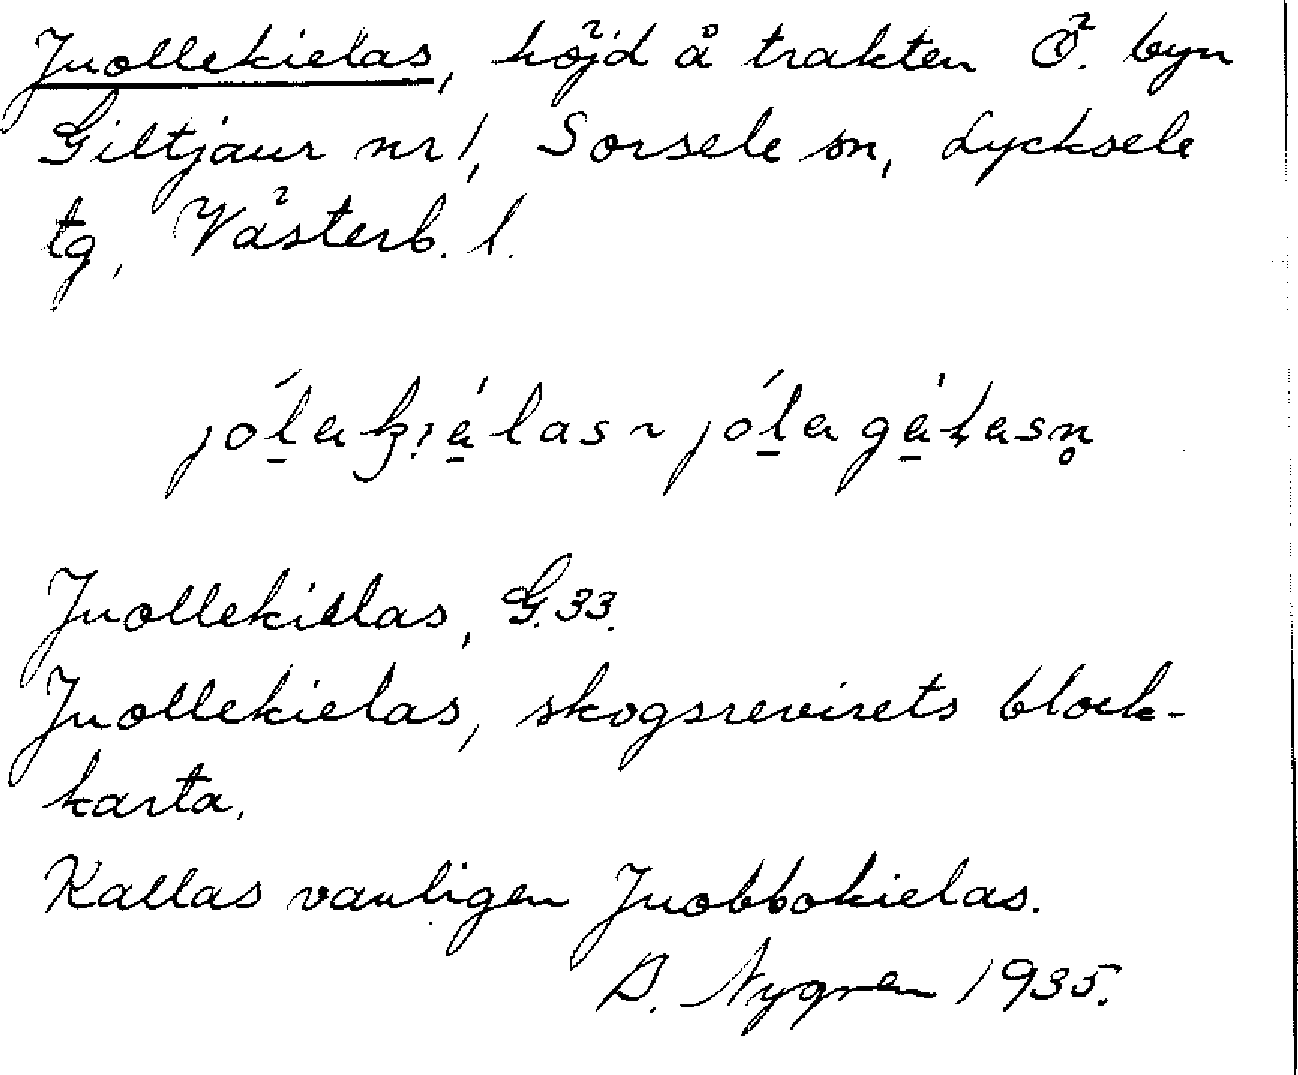 Juollekielas, höjd å trakten Ö. byn
Giltjaur nr 1, Sorsele sn, Lycksele
tg, Västerb. l.
Juollekielas, G.33.
Juollekielas, skogsrevirets block-
karta.
Kallas vanligen Juobbokielas.
D. Nygren 1935.